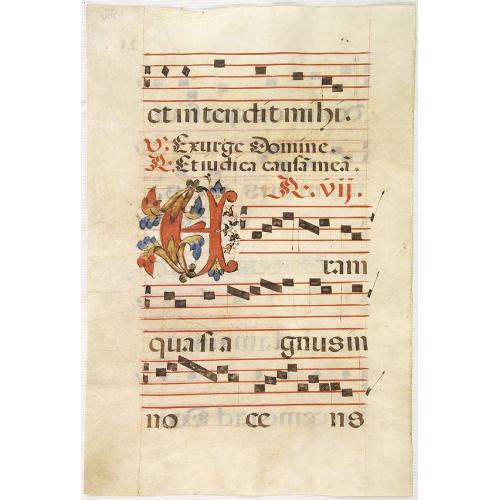 et intendit mihi.
℣. Exurge Domine.
℟. Et iudica causa meā.
℟. vij.
Eram
quasi a gnus in
no ce ns